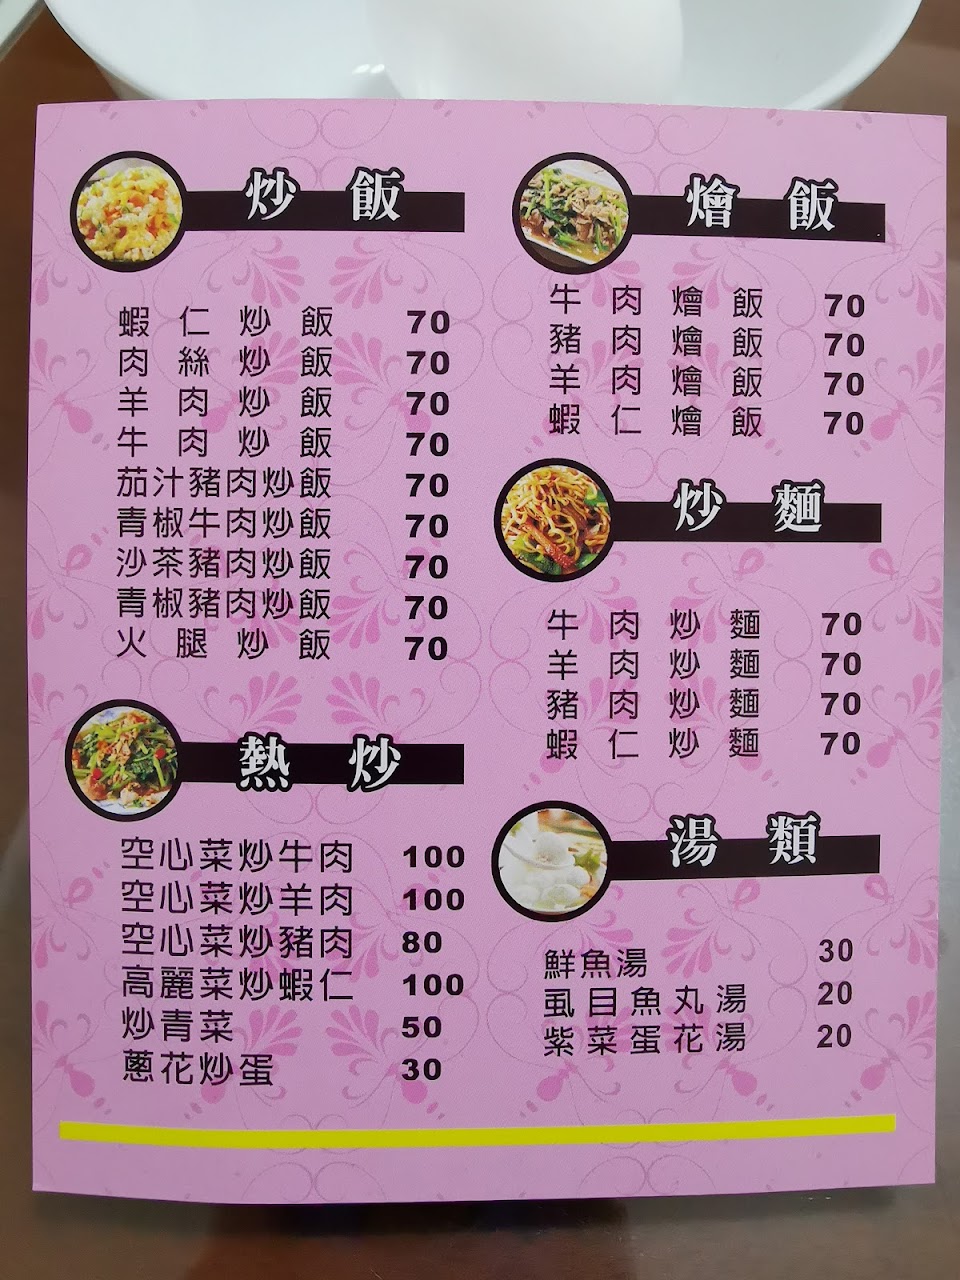 炒飯
蝦仁炒飯 70
肉絲炒飯 70
羊肉炒飯 70
牛肉炒飯 70
茄汁豬肉炒飯 70
青椒牛肉炒飯 70
沙茶豬肉炒飯 70
青椒豬肉炒飯 70
火腿炒飯 70
熱炒
空心菜炒牛肉 100
空心菜炒羊肉 100
空心菜炒豬肉 80
高麗菜炒蝦仁 100
炒青菜 50
蔥花炒蛋 30
燴飯
牛肉燴飯 70
豬肉燴飯 70
羊肉燴飯 70
蝦仁燴飯 70
炒麵
牛肉炒麵 70
羊肉炒麵 70
豬肉炒麵 70
蝦仁炒麵 70
湯類
鮮魚湯 30
虱目魚丸湯 20
紫菜蛋花湯 20